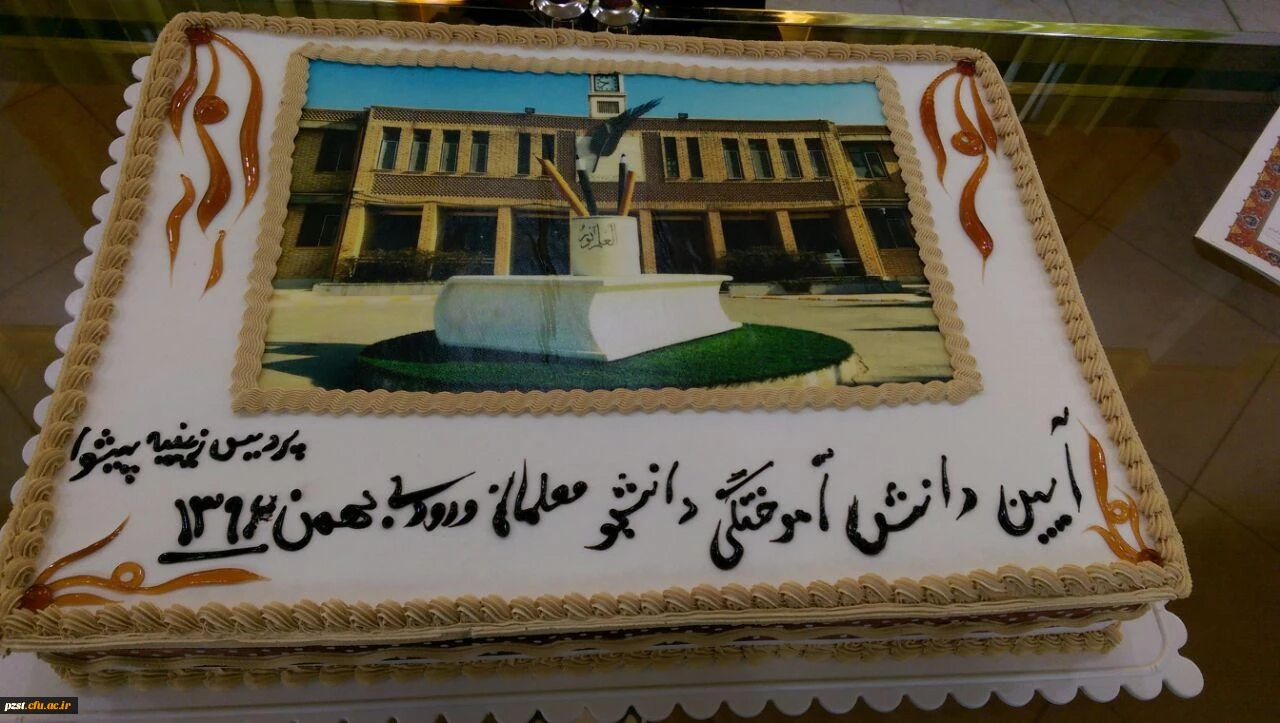 العلم نور
آیین دانش آموختگی دانشجو معلمان ورودی بهمن ۱۳۹۲
پردیس زینبیه پیشوا
pzst.cfu.ac.ir